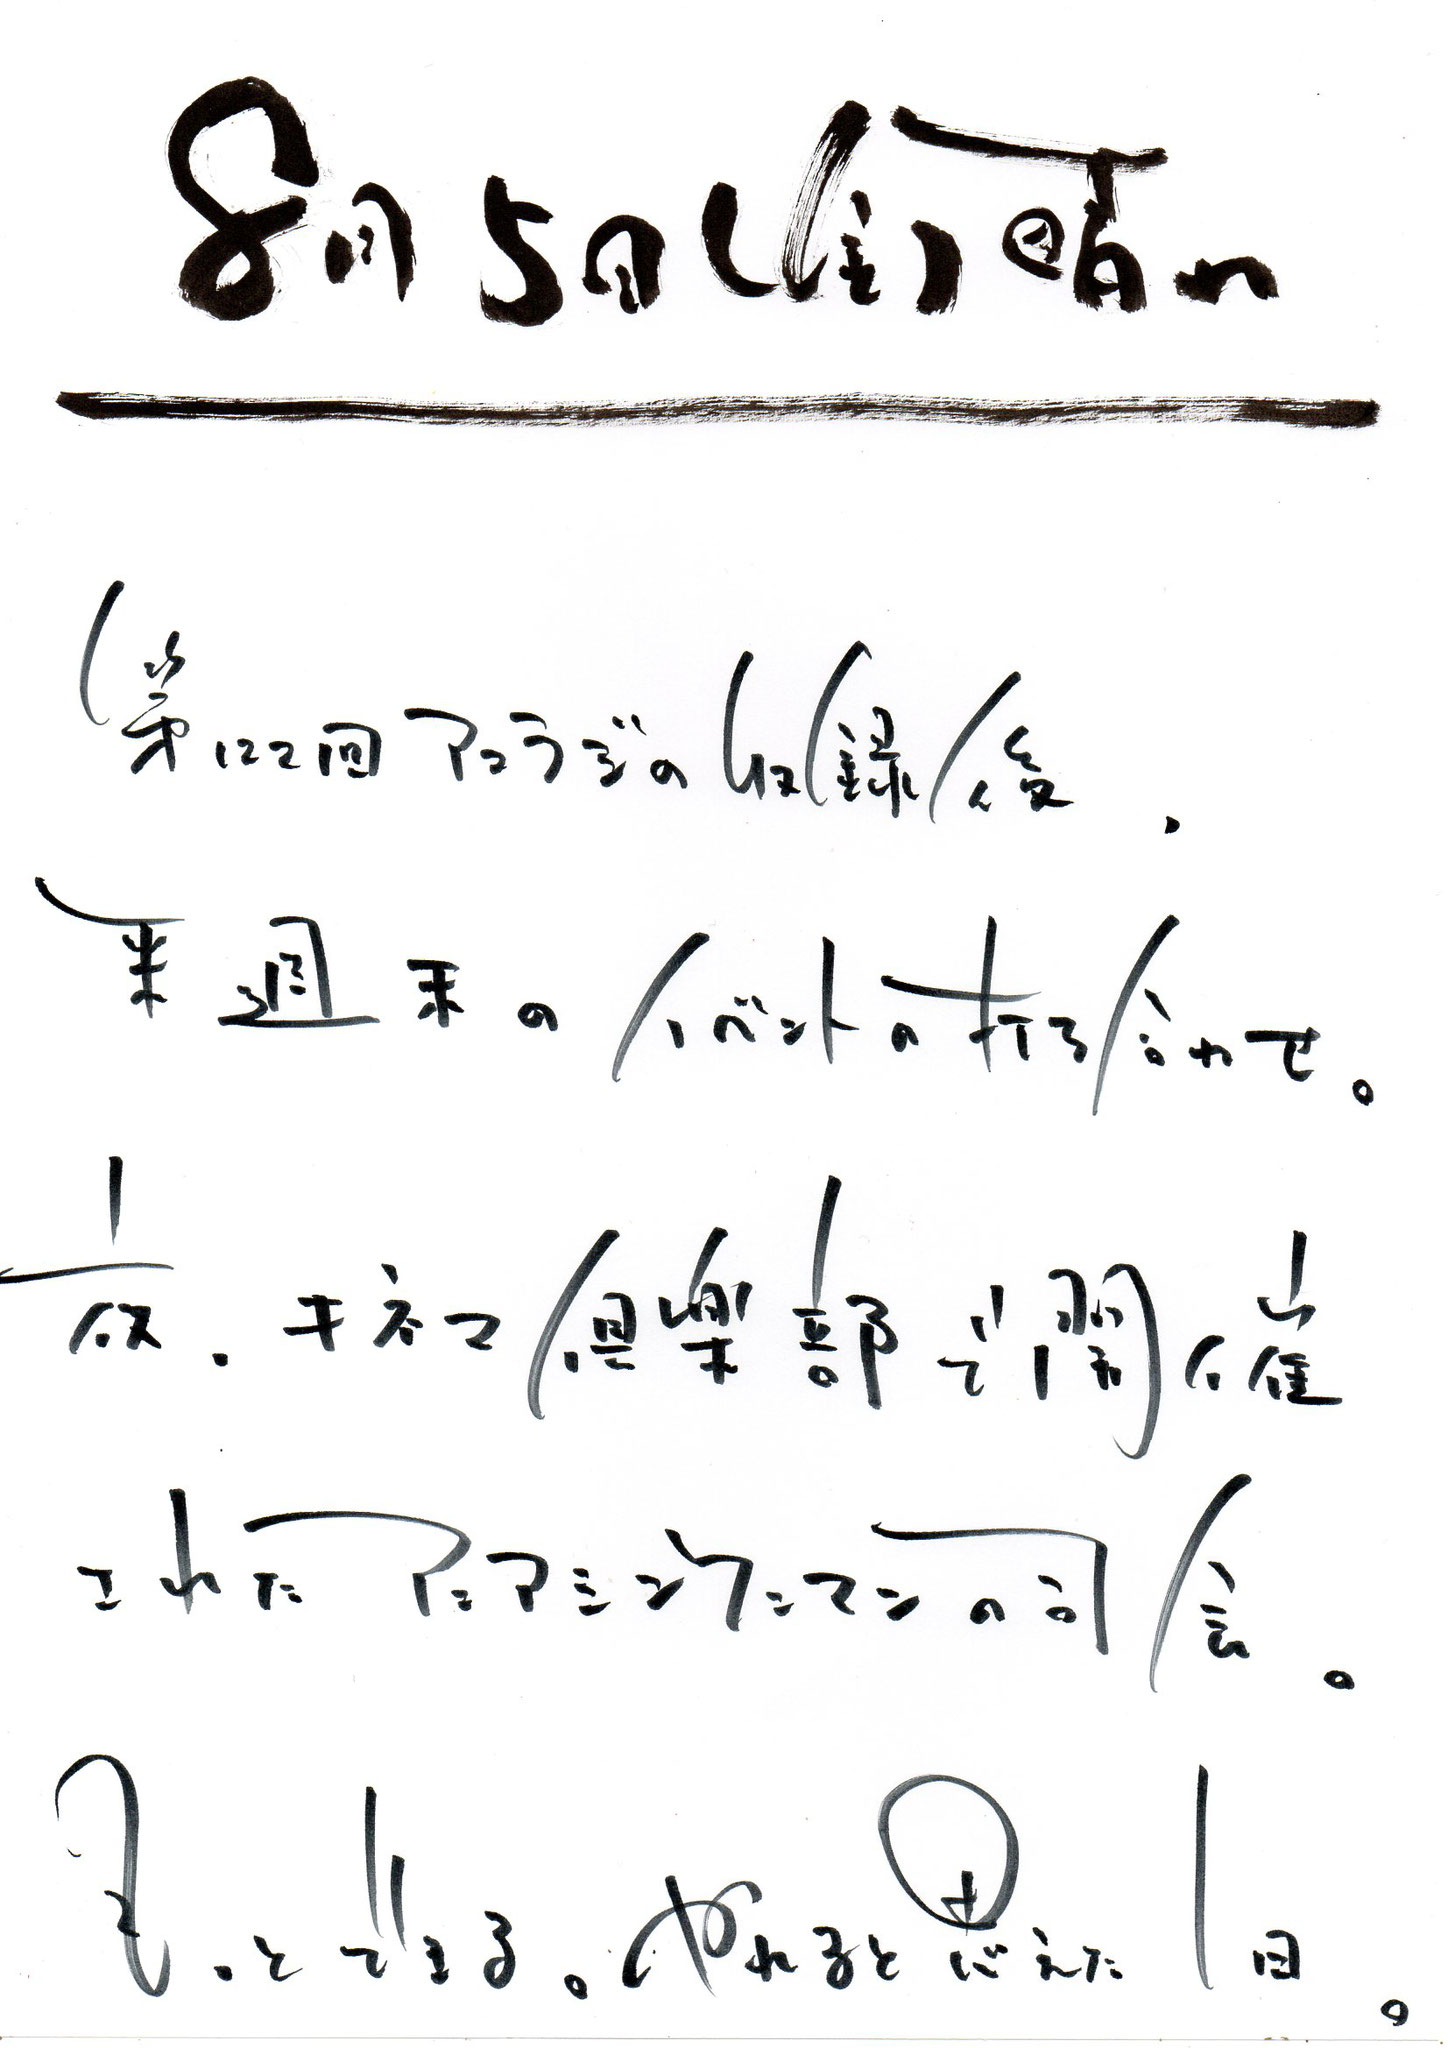 8月5日(土)晴れ
第122回アコラジの収録後、
来週末のイベントの打ち合わせ。
夜、キネマ倶楽部で開催
されたアニアミシンケンマンの司会。
もっとできる。やれると思えた1日。